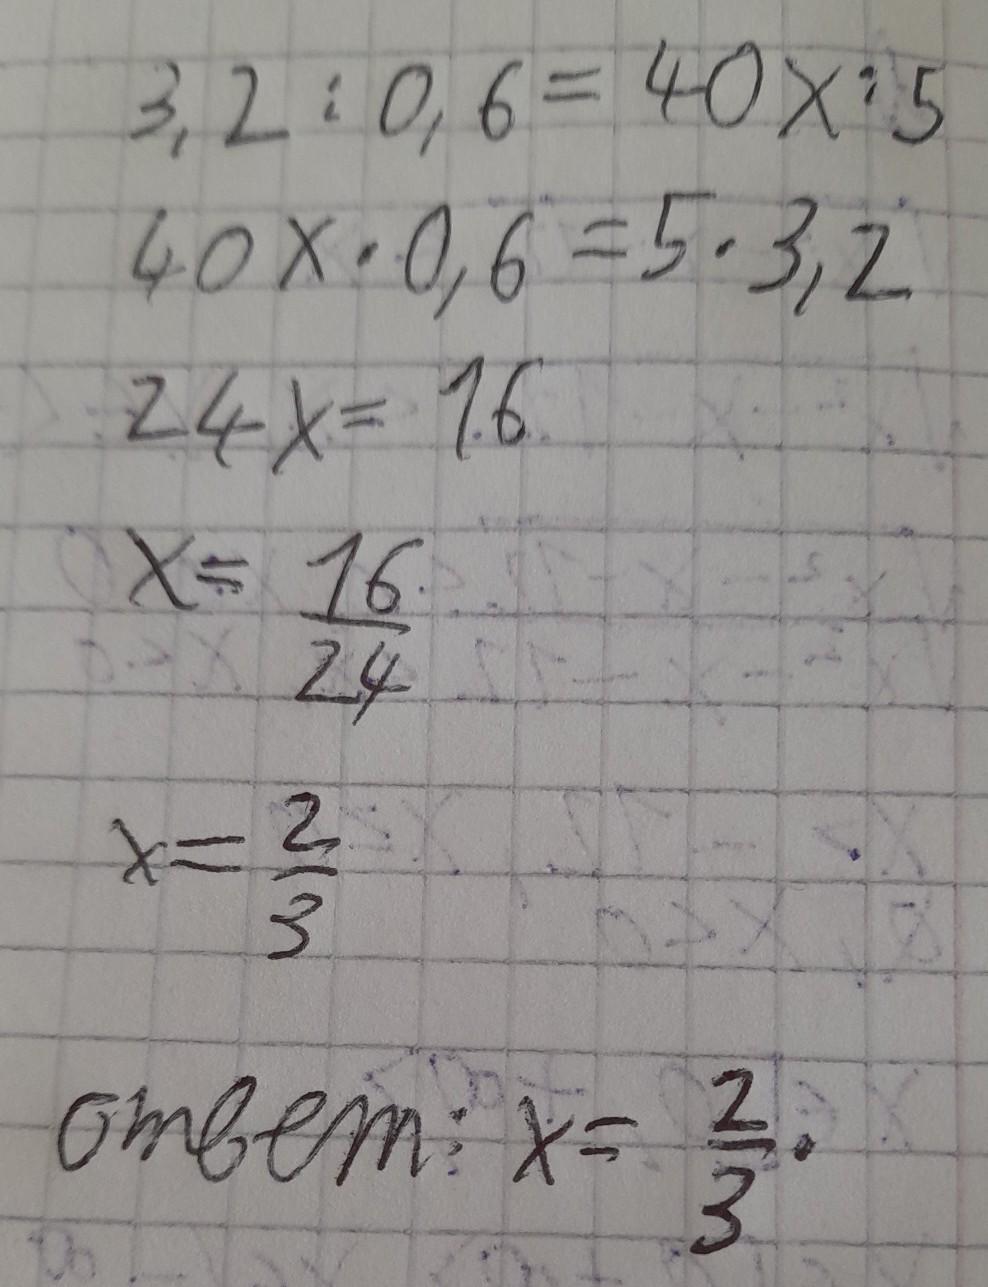 3,2 : 0,6 = 40x : 5
40x · 0,6 = 5 · 3,2
24x = 16
x = 16/24
x = 2/3
ответ: x = 2/3.